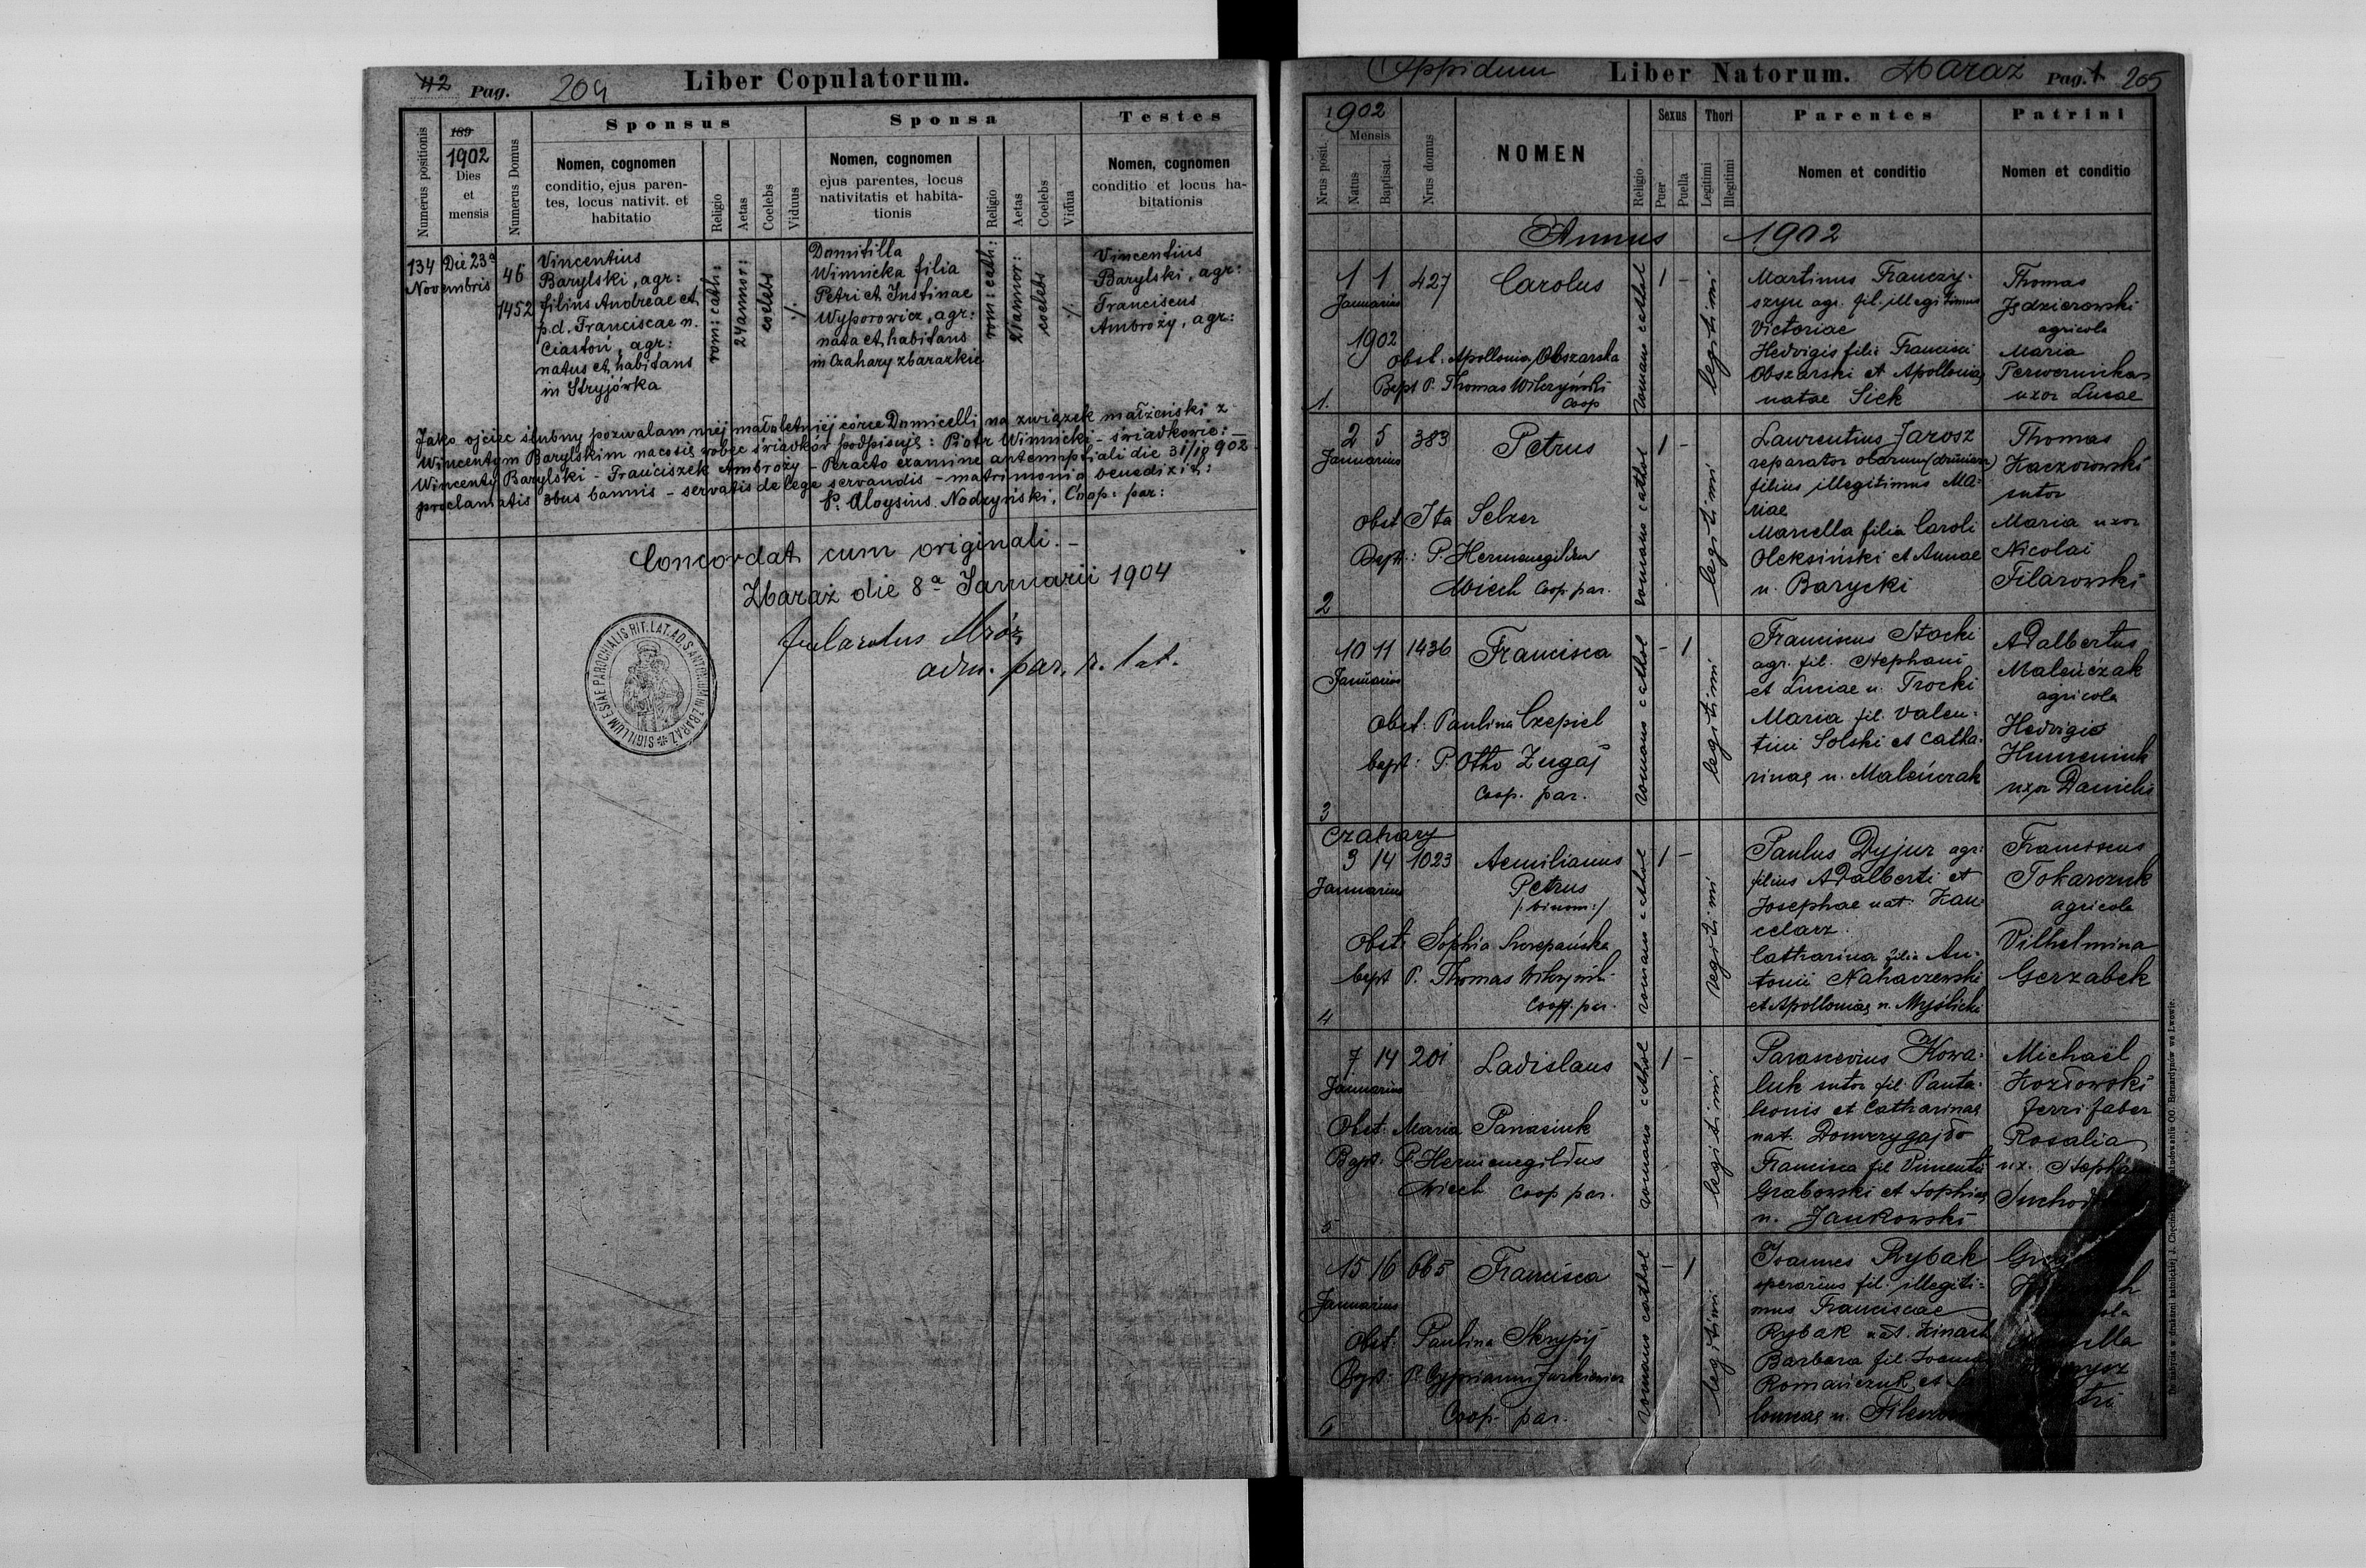 42 Pag. 204 Liber Copulatorum.
Numerus positionis
189
1902
Dies
et
mensis
Numerus Domus
Sponsus
Nomen, cognomen
conditio, ejus paren-
tes, locus nativit. et
habitatio
Religio
Aetas
Coelebs
Viduus
Sponsa
Nomen, cognomen
ejus parentes, locus
nativitatis et habita-
tionis
Religio
Aetas
Coelebs
Vidua
Testes
Nomen, cognomen
conditio et locus ha-
bitationis
134
Die 23a
Novembris
46
1452
Vincentius
Barylski, agr:
filius Andreae et
p.d. Franciscae n.
Ciastoń, agr:
natus et habitans
in Stryjówka
rom: cath:
24 annor:
coelebs
./.
Domitilla
Winnicka filia
Petri et Justinae
Wyporowicz, agr:
nata et habitans
in Czahary zbarazkie
rom: cath:
21 annor:
coelebs
./.
Vincentius
Barylski, agr:
Franciscus
Ambroży, agr:
Jako ojciec ślubny pozwalam mej małoletniej córce Domicelli na związek małżeński z
Wincentym Barylskim na co się wobec świadków podpisuję: Piotr Winnicki - świadkowie: -
Wincenty Barylski - Franciszek Ambroży - Peracto examine antenuptiali die 31/10 902
proclamatis 3bus bannis - servatis de lege servandis - matrimonio benedixit:
P. Aloysius Nodzyński, Coop: par:
Concordat cum originali. -
Zbaraż die 8a Januarii 1904
Mróz
adm. par. r. lat.
SIGILLUM ESIAE PAROCHIALIS RIT. LAT. AD S. ANTONIUM IN ZBARAŻ
Oppidum Liber Natorum. Zbaraz Pag. 1 205
1902
Nrus posit.
Mensis
Natus
Baptisat.
Nrus domus
NOMEN
Religio
Sexus
Puer
Puella
Thori
Legitimi
Illegitimi
Parentes
Nomen et conditio
Patrini
Nomen et conditio
Annus 1902
1 1 427
Januarius
1902
Carolus
Obst. Apollonia Obszarska
Bapt P. Thomas Wilczyński
Coop
1.
romano cathol
1 -
legitimi
Martinus Franczy-
szyn agr. fil. illegitimus
Victoriae
Hedvigis filia Francisci
Obszarski et Apolloniae
natae Sick
Thomas
Jędzierowski
agricola
Maria
uxor Lucae
2 5 383
Januarius
Petrus
Obst Ita Selzer
Bapt: P Hermenegildus
Wiech Coop. par.
2
romano cathol
1 -
legitimi
Laurentius Jarosz
reparator
filius illegitimus Ma-
riae
Marcella filia Caroli
Oleksiński et Annae
n. Barycki
Thomas
Kaczorowski
sutor
Maria uxor
Nicolai
Filarowski
10 11 1436
Januarius
Francisca
Obst: Paulina Czepiel
bapt: P. Otto Zugaj
Coop. par.
3
romano cathol
- 1
legitimi
Franciscus Stocki
agr. fil. Stephani
et Luciae n. Trocki
Maria fil. Valen-
tini Solski et Catha-
rinae n. Maleńczak
Adalbertus
Maleńczak
agricola
Hedvigis
Humeniuk
uxor Danielis
Czahary
3 14 1023
Januarius
Aemilianus
Petrus
/: binom :/
Obst. Sophia Szczepańska
bapt P. Thomas Wilczyński
Coop. par.
4
romano cathol
1 -
legitimi
Paulus Dyjur agr:
filius Adalberti et
Josephae nat. Kan-
celarz.
Catharina filia An-
tonii Nahaczewski
et Apolloniae n. Myślicki
Franciscus
Tokarczuk
agricola
Vilhelmina
Gerzabek
7 14 201
Januarius
Ladislaus
Obst. Maria Panasiuk
Bapt. P. Hermenegildus
Wiech Coop par.
5
romano cathol
1 -
legitimi
Parascevius Kowa-
luk sutor fil. Panta-
leonis et Catharinae
nat. Domerygajdo
Francisca fil Vincentii
Grabowski et Sophiae
n. Jankowski
Michaël
Kozłowski
ferri faber
Rosalia
ux. Stepha
Suchod
15 16 665
Januarius
Francisca
Obst: Paulina Skrypij
Bapt: P. Cyprianus Jurkiewicz
Coop. par.
6
romano cathol
- 1
legitimi
Joannes Rybak
operarius fil. illegiti-
mus Franciscae
Rybak nat. Kinach
Barbara fil. Joannis
Romańczuk et
loniae n.
De nabycia w drukarni katolickiej J. Chęcińskiego
OO. Bernardynów we Lwowie.